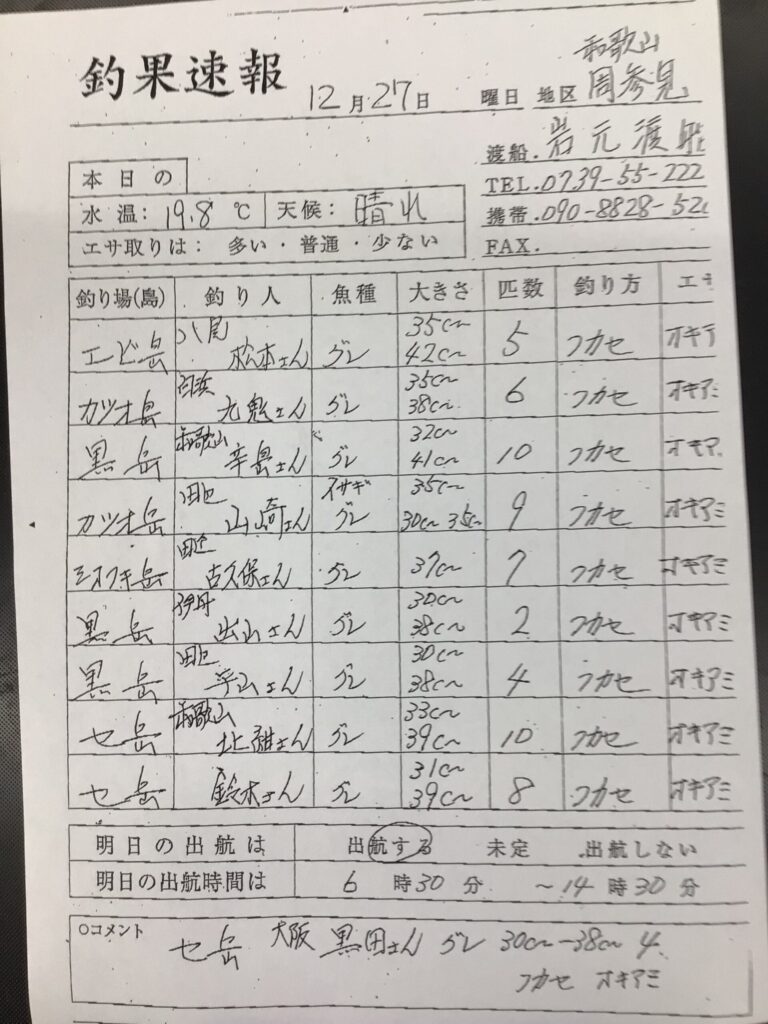 釣果速報
12月27日 曜日 地区 和歌山 周参見
渡船. 岩元渡船
TEL. 0739-55-222
携帯. 090-8828-52
FAX.
本日の
水温: 19.8 ℃ 天候: 晴れ
エサ取りは: 多い・普通・少ない
釣り場(島) 釣り人 魚種 大きさ 匹数 釣り方 エサ
エビ島 八尾 松本さん グレ 35cm 42cm 5 フカセ オキア
カツオ島 白浜 九鬼さん グレ 35cm 38cm 6 フカセ オキアミ
黒島 和歌山 辛島さん グレ 32cm 41cm 10 フカセ オキア
カツオ島 田辺 山崎さん イサギ グレ 35cm 30cm 35cm 9 フカセ オキアミ
シオフキ島 田辺 古久保さん グレ 37cm 7 フカセ オキアミ
黒島 伊丹 出山さん グレ 30cm 38cm 2 フカセ オキアミ
黒島 田辺 平山さん グレ 30cm 38cm 4 フカセ オキアミ
セ島 和歌山 さん グレ 33cm 39cm 10 フカセ オキアミ
セ島 鈴木さん グレ 31cm 39cm 8 フカセ オキアミ
明日の出航は 出航する 未定 出航しない
明日の出航時間は 6 時30 分 ~14 時30 分
○コメント セ島 大阪 黒田さん グレ 30cm-38cm 4
フカセ オキアミ